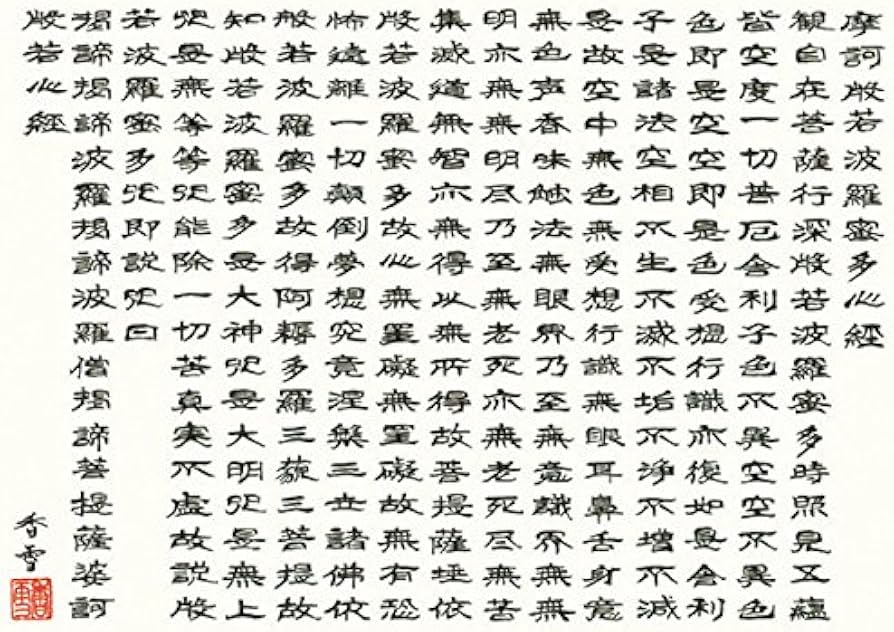 摩訶般若波羅蜜多心經
観自在菩薩行深般若波羅蜜多時照見五蘊
皆空度一切苦厄舎利子色不異空空不異色
色即是空空即是色受想行識亦復如是舎利
子是諸法空相不生不滅不垢不浄不増不減
是故空中無色無受想行識無眼耳鼻舌身意
無色声香味触法無眼界乃至無意識界無無
明亦無無明尽乃至無老死亦無老死尽無苦
集滅道無智亦無得以無所得故菩提薩埵依
般若波羅蜜多故心無罣礙無罣礙故無有恐
怖遠離一切顛倒夢想究竟涅槃三世諸佛依
般若波羅蜜多故得阿耨多羅三藐三菩提故
知般若波羅蜜多是大神呪是大明呪是無上
呪是無等等呪能除一切苦真実不虚故説般
若波羅蜜多呪即説呪曰
掲諦掲諦波羅掲諦波羅僧掲諦菩提薩婆訶
般若心經
香雪